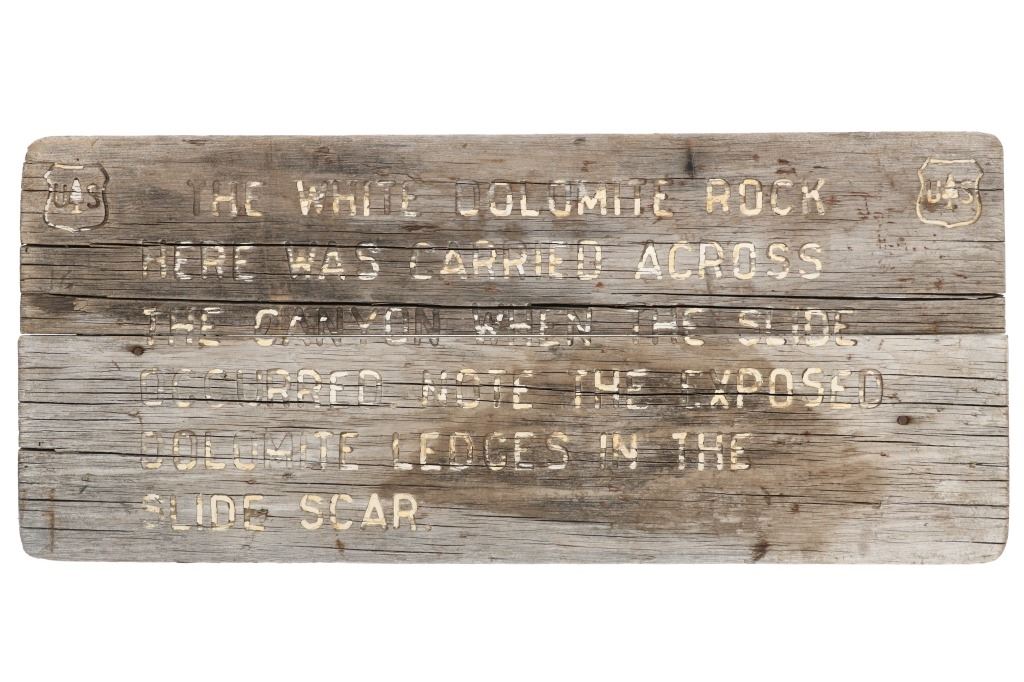 U S
U S
THE WHITE DOLOMITE ROCK
HERE WAS CARRIED ACROSS
THE CANYON WHEN THE SLIDE
OCCURRED NOTE THE EXPOSED
DOLOMITE LEDGES IN THE
SLIDE SCAR.